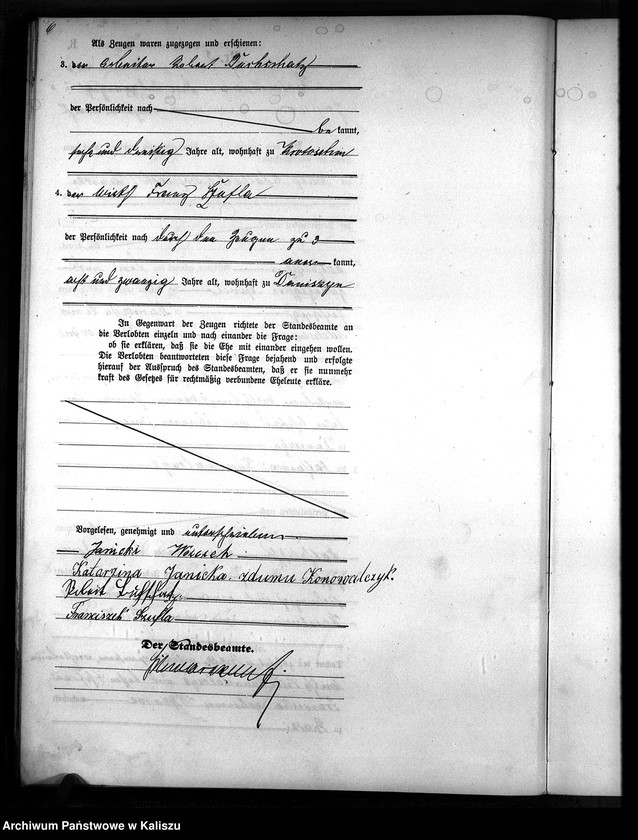 Als Zeugen waren zugezogen und erschienen:
3. der Arbeiter Robert
der Persönlichkeit nach
be kannt,
sechs und dreißig Jahre alt, wohnhaft zu Krotoschin
4. der Wirth Franz Szufla
der Persönlichkeit nach durch den Zeugen zu 3
aner kannt,
acht und zwanzig Jahre alt, wohnhaft zu Daniszyn
In Gegenwart der Zeugen richtete der Standesbeamte an
die Verlobten einzeln und nach einander die Frage:
ob sie erklären, daß sie die Ehe mit einander eingehen wollen.
Die Verlobten beantworteten diese Frage bejahend und erfolgte
hierauf der Ausspruch des Standesbeamten, daß er sie nunmehr
kraft des Gesetzes für rechtmäßig verbundene Eheleute erkläre.
Vorgelesen, genehmigt und unterschrieben
Janicki
Katarzina Janicka. zdumu Konowalczyk.
Robert
Franciszek Szufla
Der Standesbeamte.
Archiwum Państwowe w Kaliszu